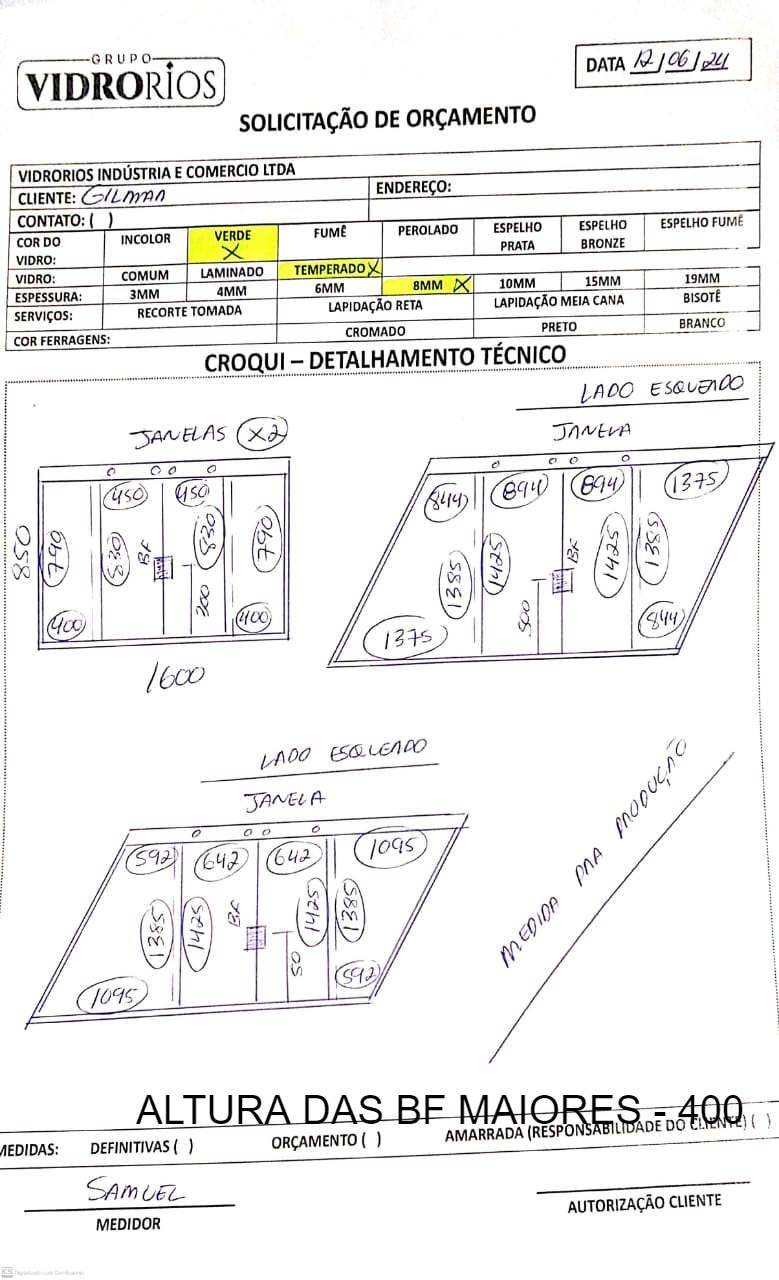 GRUPO
VIDRORIOS
DATA 12/06/24
SOLICITAÇÃO DE ORÇAMENTO
VIDRORIOS INDÚSTRIA E COMERCIO LTDA
CLIENTE: GILMAR
ENDEREÇO:
CONTATO: ( )
COR DO VIDRO: INCOLOR VERDE X FUMÊ PEROLADO ESPELHO PRATA ESPELHO BRONZE ESPELHO FUMÊ
VIDRO: COMUM LAMINADO TEMPERADO X
ESPESSURA: 3MM 4MM 6MM 8MM X 10MM 15MM 19MM
SERVIÇOS: RECORTE TOMADA LAPIDAÇÃO RETA LAPIDAÇÃO MEIA CANA BISOTÊ
COR FERRAGENS: CROMADO PRETO BRANCO
CROQUI – DETALHAMENTO TÉCNICO
LADO ESQUERDO
JANELAS X2
JANELA
450 450
850 790 830 BF 830 790
300
400 400
1600
844 894 894 1375
1385 1425 BF 1425 1385
500
1375 844
LADO ESQUERDO
JANELA
592 642 642 1095
1385 1425 BF 1425 1385
50
1095 592
MEDIDA PRA PRODUÇÃO
ALTURA DAS BF MAIORES - 400
MEDIDAS: DEFINITIVAS ( ) ORÇAMENTO ( ) AMARRADA (RESPONSABILIDADE DO CLIENTE) ( )
SAMUEL
MEDIDOR
AUTORIZAÇÃO CLIENTE
CS Digitalizado com CamScanner